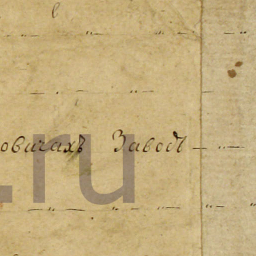 овичахъ Заводъ — „ —
.ru